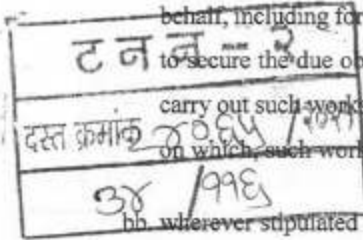 behalf, including for
ट न न - ३
to secure the due ob
carry out such work
दस्त क्रमांक ४०६५ / २०११
on which, such work
३४ / ११६
bb. wherever stipulated